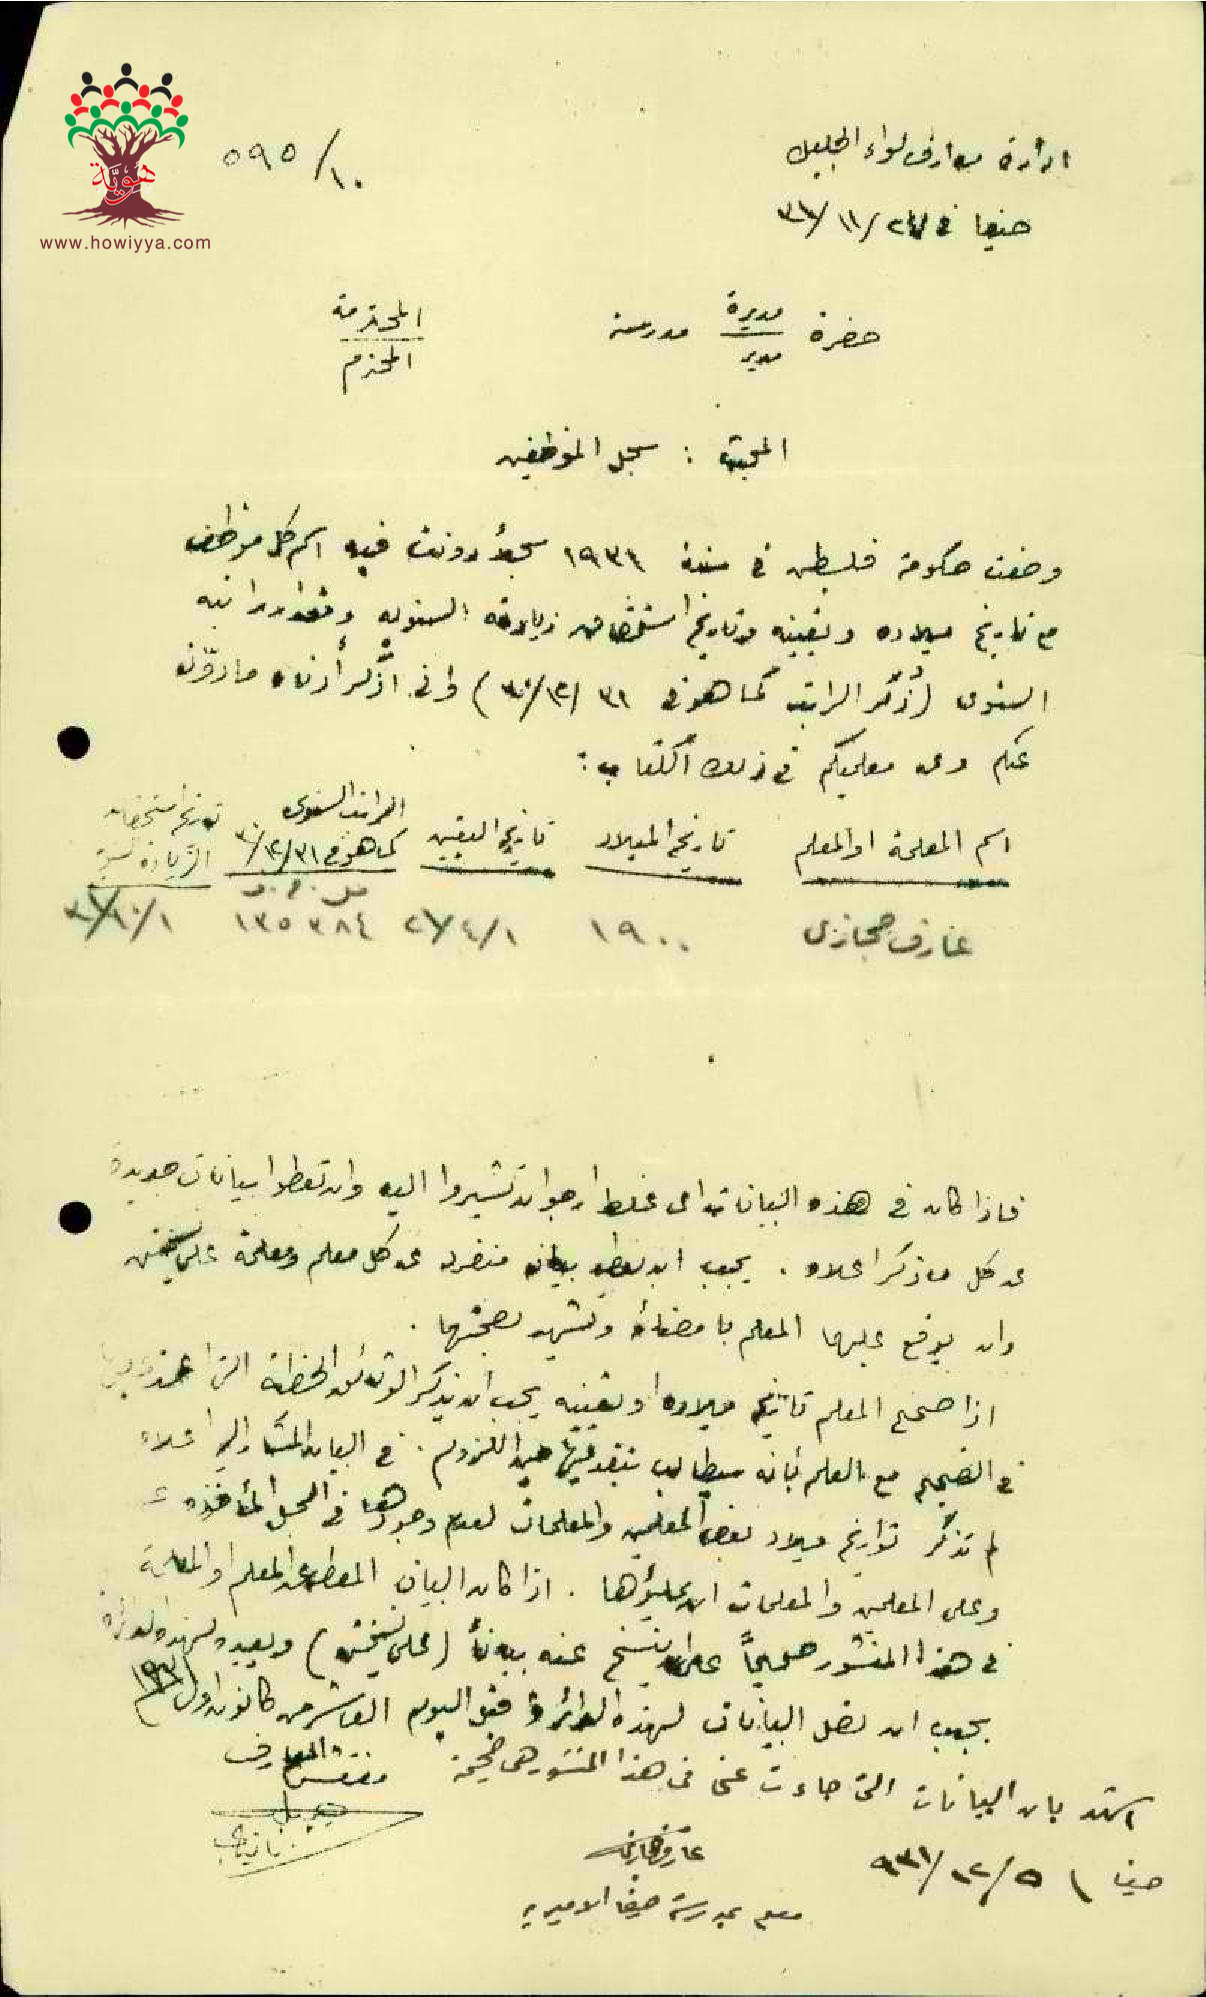 هويّة
www.howiyya.com
ادارة معارف لواء الجليل
١٠/٥٩٥
حيفا في ٢٧/١١/٣١
حضرة مديرة مدرسة المحترمة
مدير المحترم
المبحث : سجل الموظفين
وضعت حكومة فلسطين في سنة ١٩٣١ سجلاً دونت فيه اسم كل موظف
مع تاريخ ميلاده وتعيينه وتاريخ استحقاق زيادته السنويه ومقدار راتبه
السنوي (ذُكر الراتب كما هو في ٣١/١٢/٣٠) واني اذكر أدناه ما دوّن
عنكم وعن معلميكم في ذلك الكتاب :
اسم المعلمة او المعلم
تاريخ الميلاد
تاريخ التعيين
الراتب السنوي
كما هو في ٣١/١٢/٣٠
تاريخ استحقاق
الزيادة السنوية
عارف حجازي
١٩٠٠
١/٤/٢٧
٣٨٤ ١٣٥
١/١٠/٣١
فاذا كان في هذه البيانات اي غلط ارجو ان تشيروا اليه وان تعطوا بيانات جديدة
عن كل ما ذكر اعلاه . يجب ان يعطى بيان منفرد عن كل معلم ومعلمة على نسختين
وان يوقع عليها المعلم بامضائه وتشهد بصحتها .
اذا صحح المعلم تاريخ ميلاده او تعيينه يجب ان يذكر الوثائق الخطية التي اعتمد عليها
في التصحيح مع العلم بأنه سيطالب بتقديمها حين اللزوم . في البيان المشار اليه اعلاه
لم تذكر تواريخ ميلاد بعض المعلمين والمعلمات لعدم وجودها في السجل المأخوذة عنه
وعلى المعلمين والمعلمات ان يملؤها . اذا كان البيان المعطى عن المعلم او المعلمة
في هذا المنشور صحيحاً عليه ان ينسخ عنه بياناً (على نسختين) ويعيده لهذه الدائرة
يجب ان تصل البيانات لهذه الدائرة قبل اليوم العاشر من كانون اول ١٩٣١
مفتش المعارف
اشهد بان البيانات التي جاءت عني في هذا المنشور هي صحيحة
حيفا ٥/١٢/٩٣١
عارف حجازي
معلم بمدرسة حيفا الاميريه